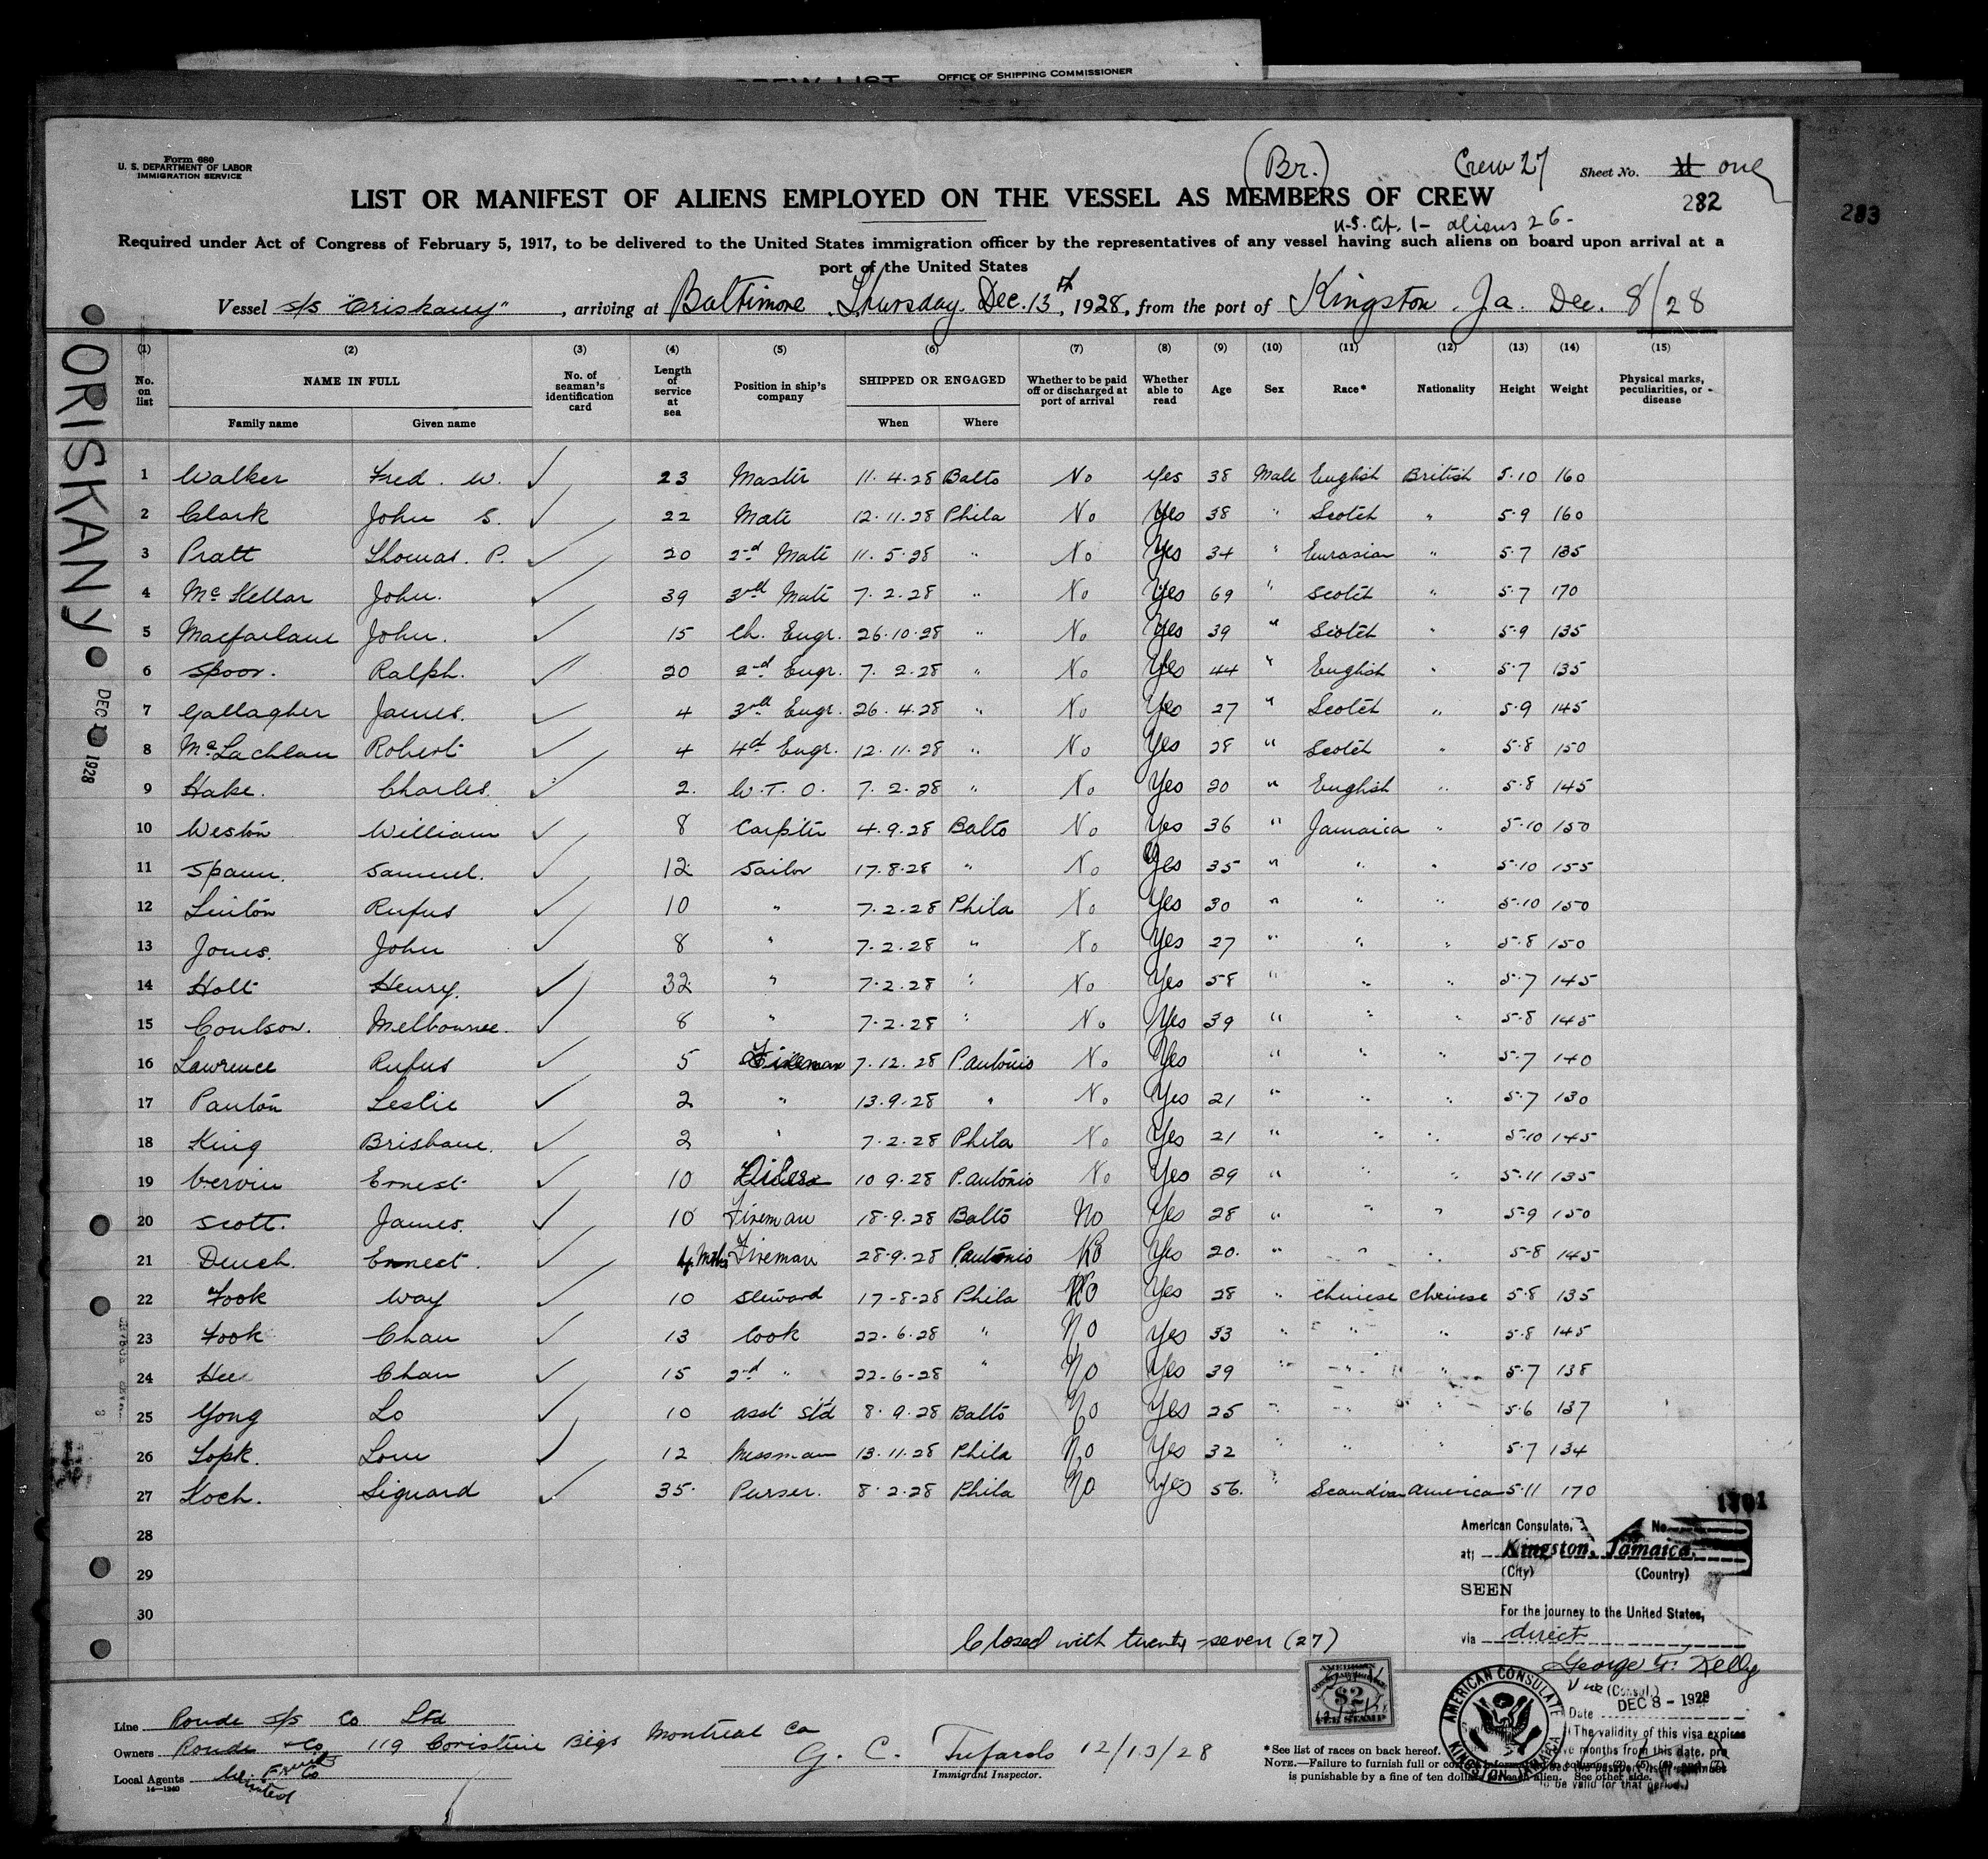 OFFICE OF SHIPPING COMMISSIONER
Form 680
U. S. DEPARTMENT OF LABOR
IMMIGRATION SERVICE
(Br.) Crew 27 Sheet No. one
LIST OR MANIFEST OF ALIENS EMPLOYED ON THE VESSEL AS MEMBERS OF CREW
282
283
U.S. Cit. 1 - aliens 26 -
Required under Act of Congress of February 5, 1917, to be delivered to the United States immigration officer by the representatives of any vessel having such aliens on board upon arrival at a
port of the United States
Vessel s/s "Oriskany", arriving at Baltimore, Thursday Dec. 13th, 1928, from the port of Kingston, Ja. Dec. 8/28
ORISKANY
DEC 1928
(1) (2) (3) (4) (5) (6) (7) (8) (9) (10) (11) (12) (13) (14) (15)
No. on list NAME IN FULL No. of seaman's identification card Length of service at sea Position in ship's company SHIPPED OR ENGAGED Whether to be paid off or discharged at port of arrival Whether able to read Age Sex Race* Nationality Height Weight Physical marks, peculiarities, or disease
Family name Given name When Where
1 Walker Fred. W. ✓ 23 Master 11.4.28 Balto No Yes 38 Male English British 5.10 160
2 Clark John S. ✓ 22 Mate 12.11.28 Phila No Yes 38 " Scotch " 5.9 160
3 Pratt Thomas. P. ✓ 20 2nd Mate 11.5.28 " No Yes 34 " Eurasian " 5.7 135
4 McKellar John. ✓ 39 3rd Mate 7.2.28 " No Yes 69 " Scotch " 5.7 170
5 Macfarlane John. ✓ 15 Ch. Engr. 26.10.28 " No Yes 39 " Scotch " 5.9 135
6 Spoor. Ralph. ✓ 20 2nd Engr. 7.2.28 " No Yes 44 " English " 5.7 135
7 Gallagher James. ✓ 4 3rd Engr. 26.4.28 " No Yes 27 " Scotch " 5.9 145
8 McLachlan Robert ✓ 4 4th Engr. 12.11.28 " No Yes 28 " Scotch " 5.8 150
9 Hake. Charles. ✓ 2. W.T.O. 7.2.28 " No Yes 20 " English " 5.8 145
10 Weston William ✓ 8 Carptr 4.9.28 Balto No Yes 36 " Jamaica " 5.10 150
11 Spaun. Samuel. ✓ 12 Sailor 17.8.28 " No Yes 35 " " " 5.10 155
12 Linton Rufus ✓ 10 " 7.2.28 Phila No Yes 30 " " " 5.10 150
13 Jones. John ✓ 8 " 7.2.28 " No Yes 27 " " " 5.8 150
14 Holt Henry. ✓ 32 " 7.2.28 " No Yes 58 " " " 5.7 145
15 Coulson. Melbourne. ✓ 8 " 7.2.28 " No Yes 39 " " " 5.8 145
16 Lawrence Rufus ✓ 5 Fireman 7.12.28 P. Antonio No Yes " " " 5.7 140
17 Panton Leslie ✓ 2 " 13.9.28 " No Yes 21 " " " 5.7 130
18 King Brisbane. ✓ 2 " 7.2.28 Phila No Yes 21 " " " 5.10 145
19 Ernest ✓ 10 10 9.28 P. Antonio No Yes 29 " " " 5.11 135
20 Scott. James. ✓ 10 Fireman 18.9.28 Balto No Yes 28 " " " 5-9 150
21 Ernest. ✓ 4 Mths Fireman 28.9.28 P. Antonio No Yes 20. " " " 5-8 145
22 Fook Way ✓ 10 Steward 17-8-28 Phila No Yes 28 " Chinese Chinese 5.8 135
23 Fook Chan ✓ 13 Cook 22-6.28 " No Yes 33 " " " 5.8 145
24 Hee Chan ✓ 15 2nd " 22-6-28 " No Yes 39 " " " 5.7 138
25 Yong Lo ✓ 10 asst Std 8.9.28 Balto No Yes 25 " " " 5.6 137
26 Low ✓ 12 Messman 13.11.28 Phila No Yes 32 " " " 5.7 134
27 Koch. Siguard ✓ 35. Purser. 8.2.28 Phila No Yes 56. " Scandian American 5.11 170
28
29
30
Closed with twenty-seven (27)
American Consulate, No.
at Kingston, Jamaica
(City) (Country)
SEEN
For the journey to the United States,
via direct
George F. Kelly
Vice (Consul.)
Date DEC 8 - 1928
(The validity of this visa expires
months from this date,
to be valid for that period.)
AMERICAN CONSULATE
KINGSTON, JAMAICA
AMERICAN
$2
FEE STAMP
Line Ponde S/S Co Ltd
Owners Ponde & Co, 119 Coristine Blgs Montreal Ca
Local Agents United Fruit Co
14-1240
G. C. Tufarolo 12/13/28
Immigrant Inspector.
*See list of races on back hereof.
NOTE.—Failure to furnish full or correct information in columns
is punishable by a fine of ten dollars for each alien. See other side.